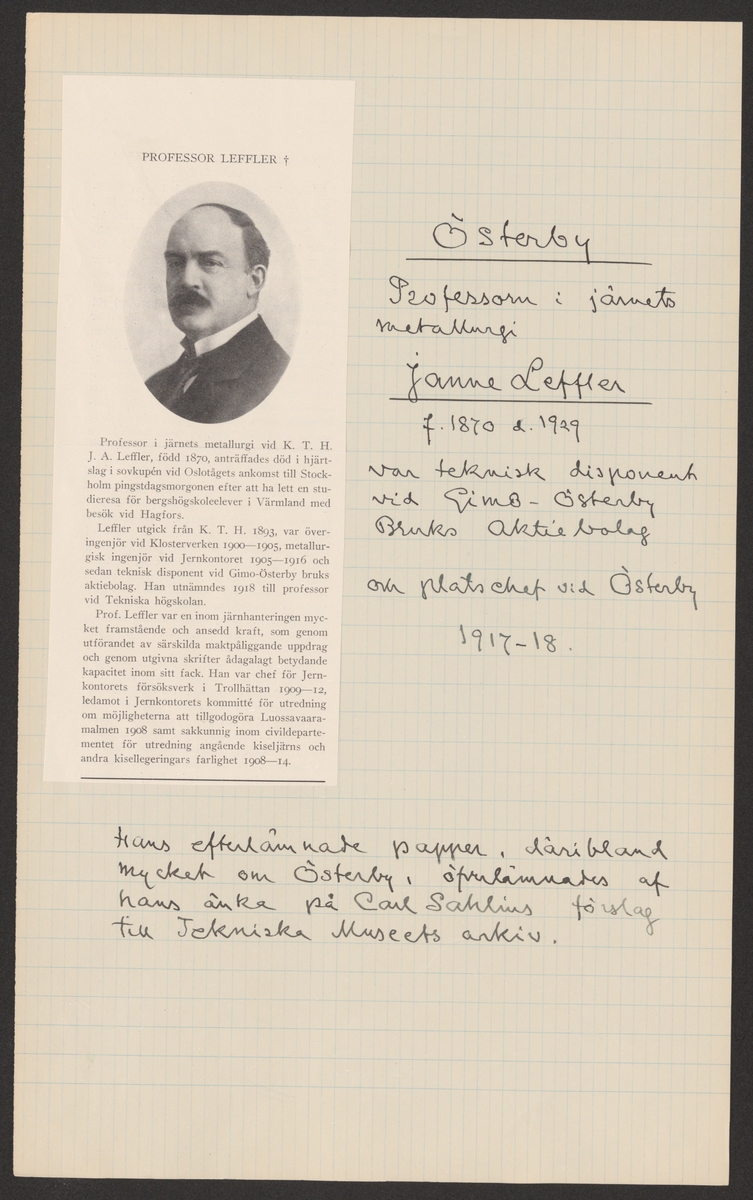 PROFESSOR LEFFLER †
Professor i järnets metallurgi vid K. T. H.
J. A. Leffler, född 1870, anträffades död i hjärt-
slag i sovkupén vid Oslotågets ankomst till Stock-
holm pingstdagsmorgonen efter att ha lett en stu-
dieresa för bergshögskoleelever i Värmland med
besök vid Hagfors.
Leffler utgick från K. T. H. 1893, var över-
ingenjör vid Klosterverken 1900—1905, metallur-
gisk ingenjör vid Jernkontoret 1905—1916 och
sedan teknisk disponent vid Gimo-Österby bruks
aktiebolag. Han utnämndes 1918 till professor
vid Tekniska högskolan.
Prof. Leffler var en inom järnhanteringen myc-
ket framstående och ansedd kraft, som genom
utförandet av särskilda maktpåliggande uppdrag
och genom utgivna skrifter ådagalagt betydande
kapacitet inom sitt fack. Han var chef för Jern-
kontorets försöksverk i Trollhättan 1909—12,
ledamot i Jernkontorets kommitté för utredning
om möjligheterna att tillgodogöra Luossavaara-
malmen 1908 samt sakkunnig inom civildeparte-
mentet för utredning angående kiseljärns och
andra kisellegeringars farlighet 1908—14.
Österby
Professorn i järnets
metallurgi
Janne Leffler
f. 1870 d. 1929
var teknisk disponent
vid Gimo - Österby
Bruks Aktiebolag
och platschef vid Österby
1917-18.
Hans efterlämnade papper, däribland
mycket om Österby, öfverlämnades af
hans änka på Carl Sahlins förslag
till Tekniska Museets arkiv.